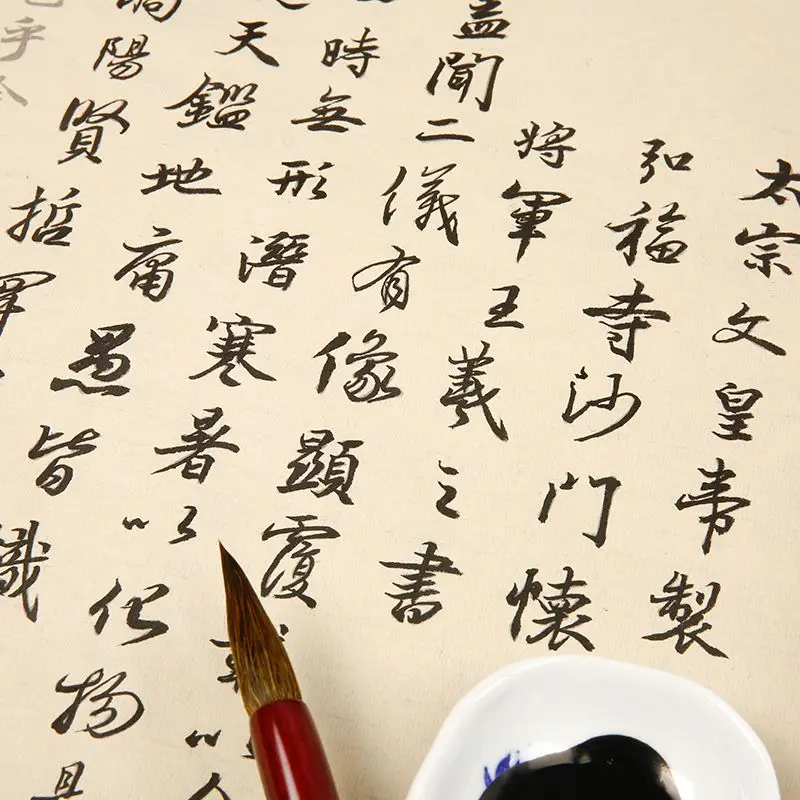 太宗文皇帝製
弘福寺沙門懷
將軍王羲之書
盖聞二儀有像顯覆以
時無形潛寒暑以化物是
天鑑地庸愚皆識
陽賢哲罕
乎